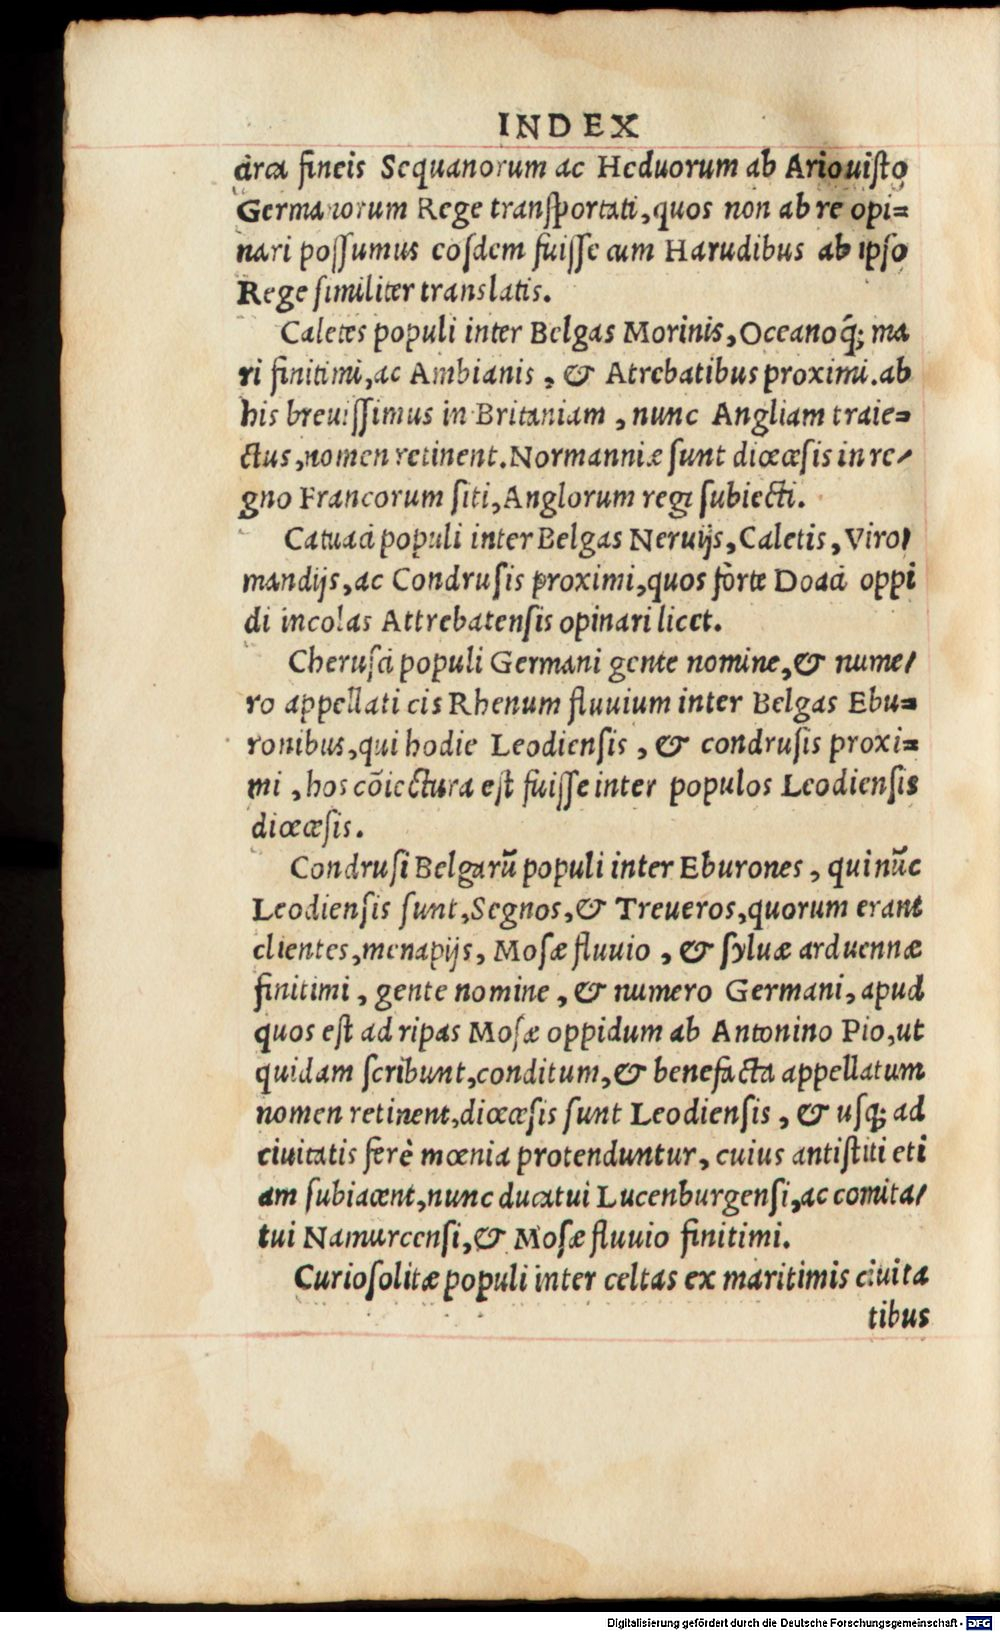 INDEX
circa fineis Sequanorum ac Heduorum ab Ariouiſto
Germanorum Rege tranſportati, quos non ab re opi=
nari poſſumus eoſdem fuiſſe cum Harudibus ab ipſo
Rege ſimiliter translatis.
Caletes populi inter Belgas Morinis, Oceanoq́; ma
ri finitimi, ac Ambianis, & Atrebatibus proximi. ab
his breuiſſimus in Britaniam, nunc Angliam traie=
ctus, nomen retinent. Normanniæ ſunt diœceſis in re/
gno Francorum ſiti, Anglorum regi ſubiecti.
Catuaci populi inter Belgas Neruijs, Caletis, Viro/
mandijs, ac Condruſis proximi, quos forte Doaci oppi
di incolas Attrebatenſis opinari licet.
Cheruſci populi Germani gente nomine, & nume/
ro appellati cis Rhenum fluuium inter Belgas Ebu=
ronibus, qui hodie Leodienſis, & condruſis proxi=
mi, hos cõiectura eſt fuiſſe inter populos Leodienſis
diœceſis.
Condruſi Belgarũ populi inter Eburones, qui nũc
Leodienſis ſunt, Segnos, & Treueros, quorum erant
clientes, menapijs, Moſæ fluuio, & ſyluæ arduennæ
finitimi, gente nomine, & numero Germani, apud
quos eſt ad ripas Moſæ oppidum ab Antonino Pio, ut
quidam ſcribunt, conditum, & benefacta appellatum
nomen retinent, diœceſis ſunt Leodienſis, & uſq; ad
ciuitatis ferè mœnia protenduntur, cuius antiſtiti eti
am ſubiacent, nunc ducatui Lucenburgenſi, ac comita/
tui Namurcenſi, & Moſæ fluuio finitimi.
Curioſolitæ populi inter celtas ex maritimis ciuita
tibus
Digitalisierung gefördert durch die Deutsche Forschungsgemeinschaft - DFG